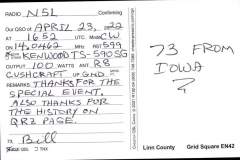 RADIO N5L Confirming
Our QSO of APRIL 23, '22
AT 1652 UTC Mode CW
ON 14.0462 MHz RST 599
KENWOOD TS-590SG
OUTPUT 100 WATTS ANT R8
CUSHCRAFT UP GND
REMARKS THANKS FOR THE
SPECIAL EVENT.
ALSO THANKS FOR
THE HISTORY ON
QRZ PAGE.
Bill
TNX
73 FROM
IOWA
Linn County Grid Square EN42